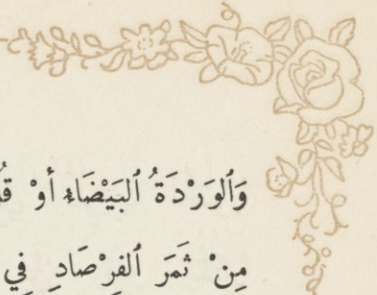 وَٱلوَرْدَةُ ٱلبَيْضَاءِ أوْ
مِنْ ثَمَرَ ٱلفرْصَادِ في